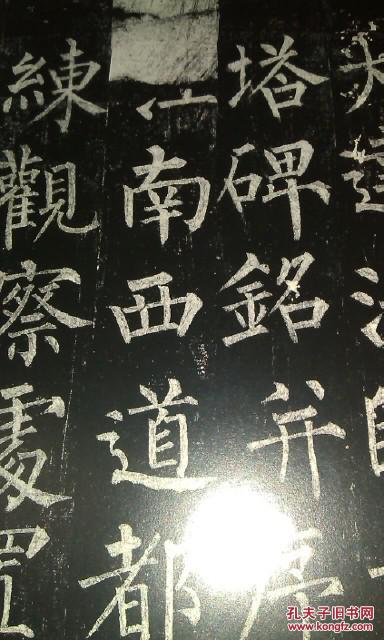 大達法師
塔碑銘并序
江南西道都
練觀察處置
孔夫子旧书网
www.kongfz.com